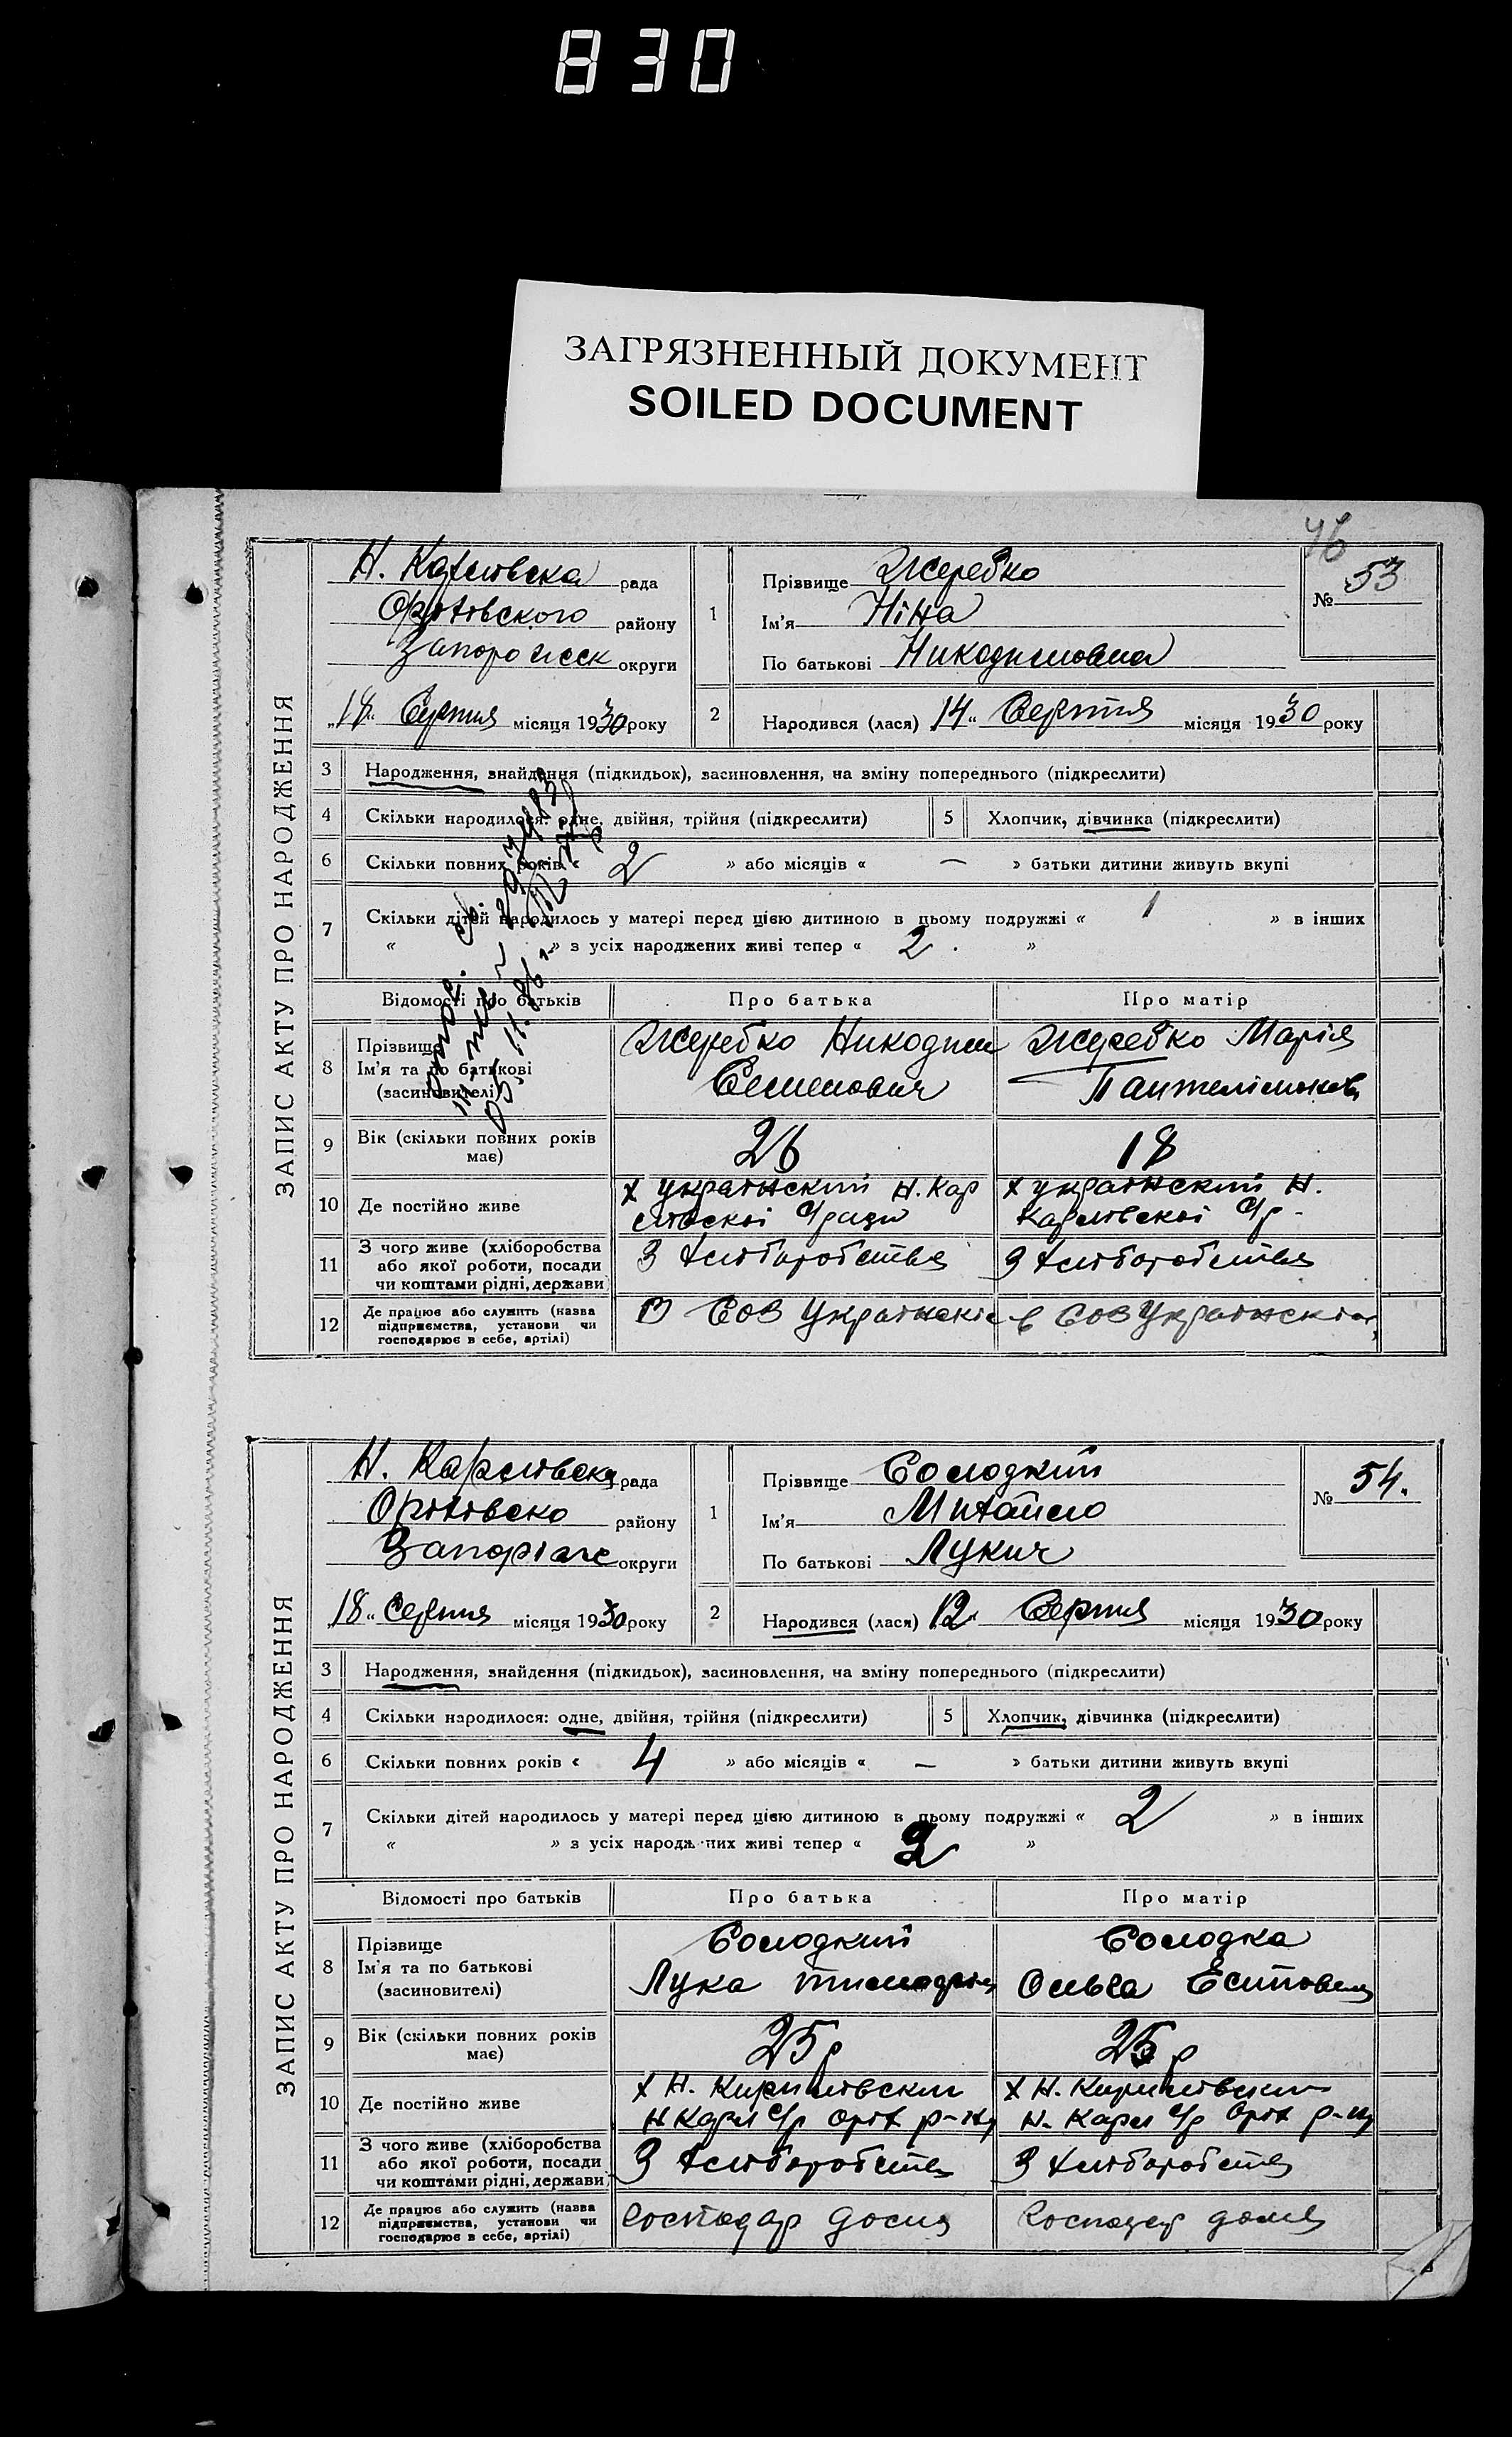 830
ЗАГРЯЗНЕННЫЙ ДОКУМЕНТ
SOILED DOCUMENT
46
ЗАПИС АКТУ ПРО НАРОДЖЕННЯ
Н. Карлівска рада
Оріхівского району
Запорожск округи
„18„ Серпня місяця 1930 року
1 Прізвище Жеребко
Ім'я Ніна
По батькові Никодимовна
№ 53
2 Народився (лася) 14„ Серпня місяця 1930 року
3 Народження, знайдення (підкидьок), засиновлення, на зміну попереднього (підкреслити)
4 Скільки народилося: одне, двійня, трійня (підкреслити) 5 Хлопчик, дівчинка (підкреслити)
6 Скільки повних років « 2 » або місяців « — » батьки дитини живуть вкупі
7 Скільки дітей народилось у матері перед цією дитиною в цьому подружжі « 1 » в інших
« » з усіх народжених живі тепер « 2 . »
Відомості про батьків Про батька Про матір
8 Прізвище
Ім'я та по батькові
(засиновителі)
Жеребко Никодим
Семенович
Жеребко Марія
9 Вік (скільки повних років
має) 26 18
10 Де постійно живе
х Украінский Н. Кар
лівскоі С/ради
х Украінский Н.
Карлівскоі С/р -
11 З чого живе (хліборобства
або якої роботи, посади
чи коштами рідні, держави)
З хліборобства З хліборобства
12 Де працює або служить (назва
підприємства, установи чи
господарює в себе, артілі)
В Соз Украінскіе в Соз
ЗАПИС АКТУ ПРО НАРОДЖЕННЯ
Н. Карлівска рада
Оріхівско району
Запоріж округи
„18„ Серпня місяця 1930 року
1 Прізвище Солодкий
Ім'я Михайло
По батькові Лукич
№ 54.
2 Народився (лася) 12„ Серпня місяця 1930 року
3 Народження, знайдення (підкидьок), засиновлення, на зміну попереднього (підкреслити)
4 Скільки народилося: одне, двійня, трійня (підкреслити) 5 Хлопчик, дівчинка (підкреслити)
6 Скільки повних років « 4 » або місяців « — » батьки дитини живуть вкупі
7 Скільки дітей народилось у матері перед цією дитиною в цьому подружжі « 2 » в інших
« » з усіх народж них живі тепер « 2 »
Відомості про батьків Про батька Про матір
8 Прізвище
Ім'я та по батькові
(засиновителі)
Солодкий
Лука
Солодка
Ольга
9 Вік (скільки повних років
має) 25 р 25 р
10 Де постійно живе
х Н. Кирилівский
Н Карл С/р Оріх р-ну
х Н. Кирилівский
Н. Карл С/р Оріх р-ну
11 З чого живе (хліборобства
або якої роботи, посади
чи коштами рідні, держави)
З хліборобств З хліборобств
12 Де працює або служить (назва
підприємства, установи чи
господарює в себе, артілі)
Господар дома Господар дома